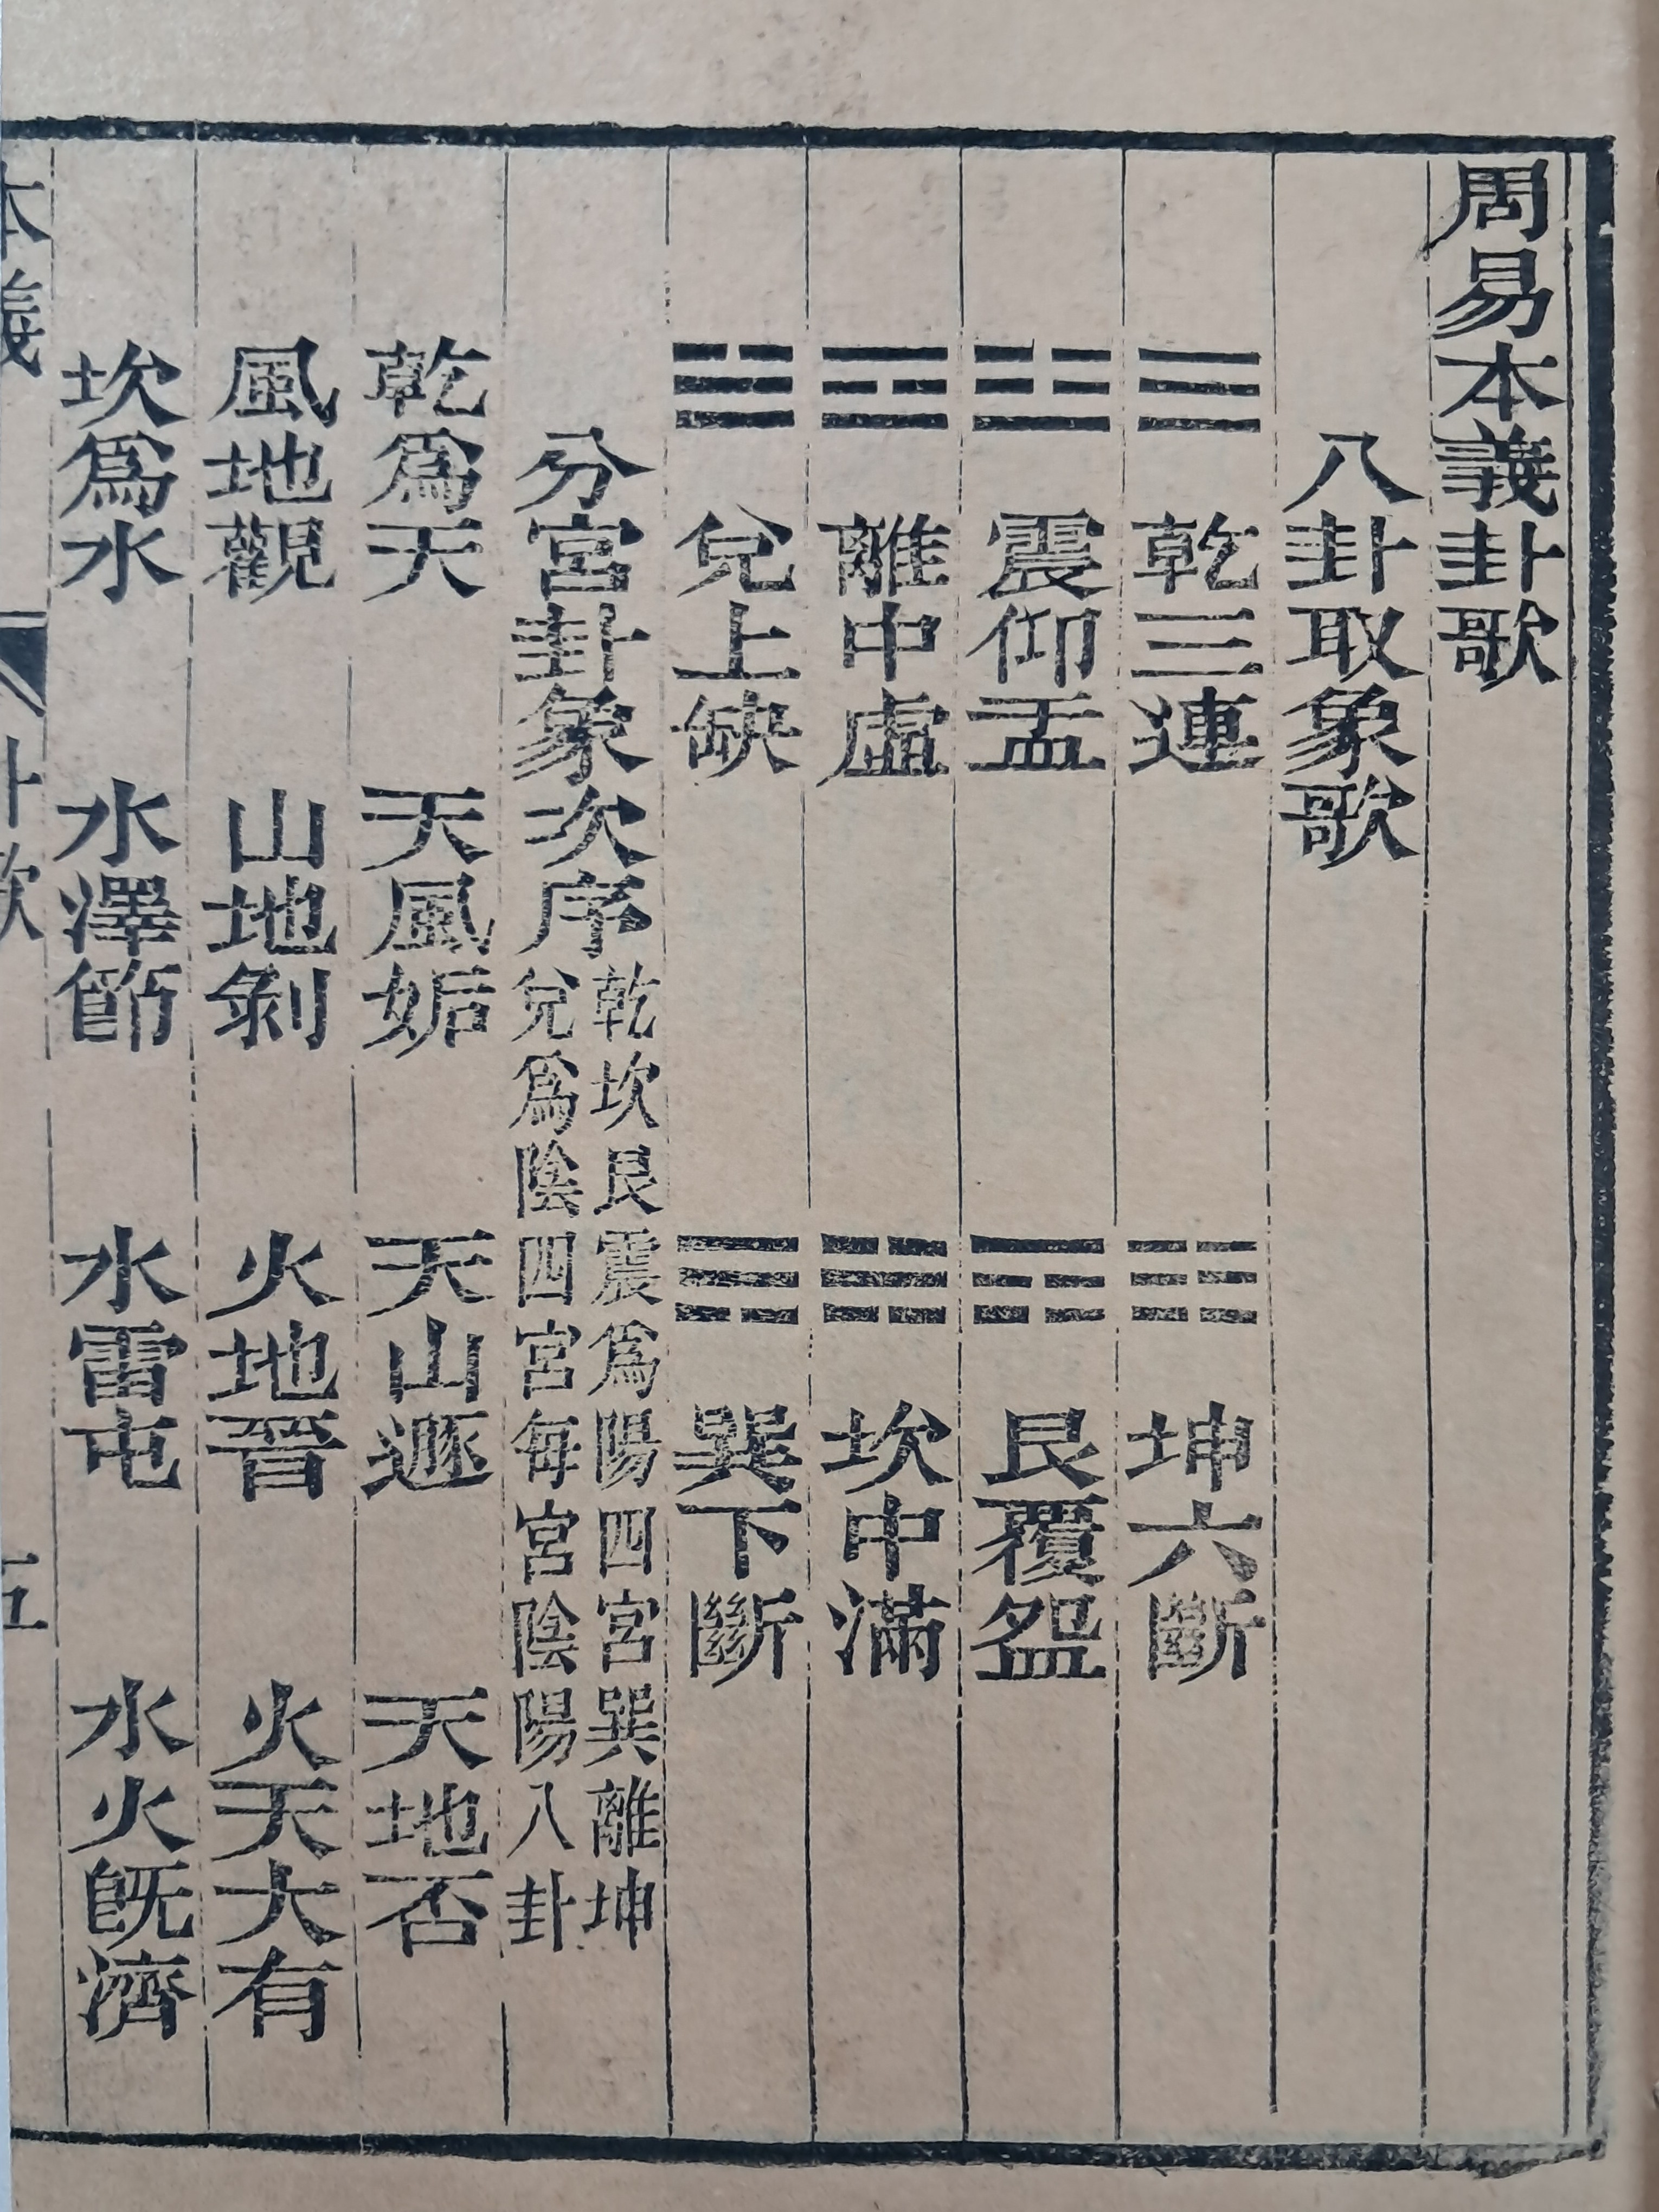 周易本義卦歌
八卦取象歌
☰ 乾三連 ☷ 坤六斷
☳ 震仰盂 ☶ 艮覆盌
☲ 離中虛 ☵ 坎中滿
☱ 兌上缺 ☴ 巽下斷
分宮卦象次序
乾坎艮震爲陽四宮巽離坤
兌爲陰四宮每宮陰陽八卦
乾爲天 天風姤 天山遯 天地否
風地觀 山地剝 火地晉 火天大有
坎爲水 水澤節 水雷屯 水火旣濟
本義 卦歌 五